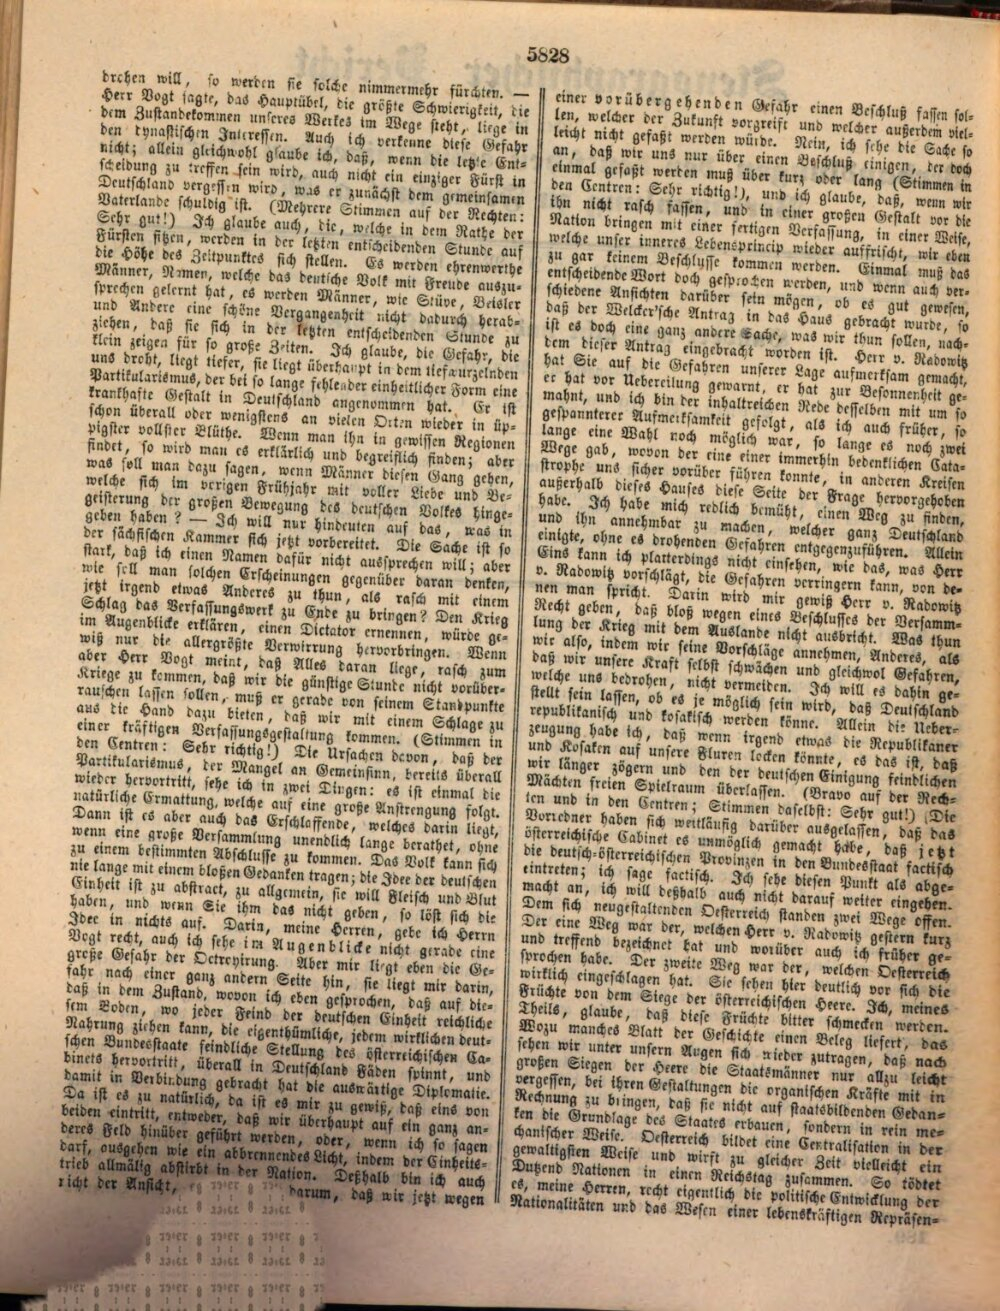 5828
drohen will, so werden sie solche nimmermehr fürchten. —
Herr Vogt sagte, das Hauptübel, die größte Schwierigkeit, die
dem Zustandekommen unseres Werkes im Wege steht, liege in
den dynastischen Interessen. Auch ich verkenne diese Gefahr
nicht; allein gleichwohl glaube ich, daß, wenn die letzte Ent-
scheidung zu treffen sein wird, auch nicht ein einziger Fürst in
Deutschland vergessen wird, was er zunächst dem gemeinsamen
Vaterlande schuldig ist. (Mehrere Stimmen auf der Rechten:
Sehr gut!) Ich glaube auch, die, welche in dem Rathe der
Fürsten sitzen, werden in der letzten entscheidenden Stunde auf
die Höhe des Zeitpunktes sich stellen. Es werden ehrenwerthe
Männer, Namen, welche das deutsche Volk mit Freude auszu-
sprechen gelernt hat, es werden Männer, wie Stüve, Beisler
und Andere eine schöne Vergangenheit nicht dadurch herab-
ziehen, daß sie sich in der letzten entscheidenden Stunde zu
klein zeigen für so große Zeiten. Ich glaube, die Gefahr, die
uns droht, liegt tiefer, sie liegt überhaupt in dem tiefwurzelnden
Partikularismus, der bei so lange fehlender einheitlicher Form eine
krankhafte Gestalt in Deutschland angenommen hat. Er ist
schon überall oder wenigstens an vielen Orten wieder in üp-
pigster vollster Blüthe. Wenn man ihn in gewissen Regionen
findet, so wird man es erklärlich und begreiflich finden; aber
was soll man dazu sagen, wenn Männer diesen Gang gehen,
welche sich im vorigen Frühjahr mit voller Liebe und Be-
geisterung der großen Bewegung des deutschen Volkes hinge-
geben haben? — Ich will nur hindeuten auf das, was in
der sächsischen Kammer sich jetzt vorbereitet. Die Sache ist so
stark, daß ich einen Namen dafür nicht aussprechen will; aber
wie soll man solchen Erscheinungen gegenüber daran denken,
jetzt irgend etwas Anderes zu thun, als rasch mit einem
Schlag das Verfassungswerk zu Ende zu bringen? Den Krieg
im Augenblicke erklären, einen Dictator ernennen, würde ge-
wiß nur die allergrößte Verwirrung hervorbringen. Wenn
aber Herr Vogt meint, daß Alles daran liege, rasch zum
Kriege zu kommen, daß wir die günstige Stunde nicht vorüber-
rauschen lassen sollen, muß er gerade von seinem Standpunkte
aus die Hand dazu bieten, daß wir mit einem Schlage zu
einer kräftigen Verfassungsgestaltung kommen. (Stimmen in
den Centren: Sehr richtig!) Die Ursachen davon, daß der
Partikularismus, der Mangel an Gemeinsinn, bereits überall
wieder hervortritt, sehe ich in zwei Dingen: es ist einmal die
natürliche Ermattung, welche auf eine große Anstrengung folgt.
Dann ist es aber auch das Erschlaffende, welches darin liegt,
wenn eine große Versammlung unendlich lange berathet, ohne
zu einem bestimmten Abschlusse zu kommen. Das Volk kann sich
nie lange mit einem bloßen Gedanken tragen; die Idee der deutschen
Einheit ist zu abstract, zu allgemein, sie will Fleisch und Blut
haben, und wenn Sie ihm das nicht geben, so löst sich die
Idee in nichts auf. Darin, meine Herren, gebe ich Herrn
Vogt recht, auch ich sehe im Augenblicke nicht gerade eine
große Gefahr der Octroyirung. Aber mir liegt eben die Ge-
fahr nach einer ganz andern Seite hin, sie liegt mir darin,
daß in dem Zustand, wovon ich eben gesprochen, daß auf die-
sem Boden, wo jeder Feind der deutschen Einheit reichliche
Nahrung ziehen kann, die eigenthümliche, jedem wirklichen deut-
schen Bundesstaate feindliche Stellung des österreichischen Ca-
binets hervortritt, überall in Deutschland Fäden spinnt, und
damit in Verbindung gebracht hat die auswärtige Diplomatie.
Da ist es zu natürlich, da ist es mir zu gewiß, daß eins von
beiden eintritt, entweder, daß wir überhaupt auf ein ganz an-
deres Feld hinüber geführt werden, oder, wenn ich so sagen
darf, ausgehen wie ein abbrennendes Licht, indem der Einheits-
trieb allmälig abstirbt in der Nation. Deßhalb bin ich auch
nicht der Ansicht, darum, daß wir jetzt wegen
einer vorübergehenden Gefahr einen Beschluß fassen sol-
len, welcher der Zukunft vorgreift und welcher außerdem viel-
leicht nicht gefaßt werden würde. Nein, ich sehe die Sache so
an, daß wir uns nur über einen Beschluß einigen, der doch
einmal gefaßt werden muß über kurz oder lang (Stimmen in
den Centren: Sehr richtig!), und ich glaube, daß, wenn wir
ihn nicht rasch fassen, und in einer großen Gestalt vor die
Nation bringen mit einer fertigen Verfassung, in einer Weise,
welche unser inneres Lebensprincip wieder auffrischt, wir eben
zu gar keinem Beschlusse kommen werden. Einmal muß das
entscheidende Wort doch gesprochen werden, und wenn auch ver-
schiedene Ansichten darüber sein mögen, ob es gut gewesen,
daß der Welcker'sche Antrag in das Haus gebracht wurde, so
ist es doch eine ganz andere Sache, was wir thun sollen, nach-
dem dieser Antrag eingebracht worden ist. Herr v. Radowitz
hat Sie auf die Gefahren unserer Lage aufmerksam gemacht,
er hat vor Uebereilung gewarnt, er hat zur Besonnenheit ge-
mahnt, und ich bin der inhaltreichen Rede desselben mit um so
gespannterer Aufmerksamkeit gefolgt, als ich auch früher, so
lange eine Wahl noch möglich war, so lange es noch zwei
Wege gab, wovon der eine einer immerhin bedenklichen Cata-
strophe uns sicher vorüber führen konnte, in anderen Kreisen
außerhalb dieses Hauses diese Seite der Frage hervorgehoben
habe. Ich habe mich redlich bemüht, einen Weg zu finden,
und ihn annehmbar zu machen, welcher ganz Deutschland
einigte, ohne es drohenden Gefahren entgegenzuführen. Allein
Eins kann ich platterdings nicht einsehen, wie das, was Herr
v. Radowitz vorschlägt, die Gefahren verringern kann, von de-
nen man spricht. Darin wird mir gewiß Herr v. Radowitz
Recht geben, daß bloß wegen eines Beschlusses der Versamm-
lung der Krieg mit dem Auslande nicht ausbricht. Was thun
wir also, indem wir seine Vorschläge annehmen, Anderes, als
daß wir unsere Kraft selbst schwächen und gleichwol Gefahren,
welche uns bedrohen, nicht vermeiden. Ich will es dahin ge-
stellt sein lassen, ob es je möglich sein wird, daß Deutschland
republikanisch und kosakisch werden könne. Allein die Ueber-
zeugung habe ich, daß wenn irgend etwas die Republikaner
und Kosaken auf unsere Fluren locken könnte, es das ist, daß
wir länger zögern und den der deutschen Einigung feindlichen
Mächten freien Spielraum überlassen. (Bravo auf der Rech-
ten und in den Centren; Stimmen daselbst: Sehr gut!) Die
Vorredner haben sich weitläufig darüber ausgelassen, daß das
österreichische Cabinet es unmöglich gemacht habe, daß jetzt
die deutsch-österreichischen Provinzen in den Bundesstaat factisch
eintreten; ich sage factisch. Ich sehe diesen Punkt als abge-
macht an, ich will deßhalb auch nicht darauf weiter eingehen.
Dem sich neugestaltenden Oesterreich standen zwei Wege offen.
Der eine Weg war der, welchen Herr v. Radowitz gestern kurz
und treffend bezeichnet hat und worüber auch ich früher ge-
sprochen habe. Der zweite Weg war der, welchen Oesterreich
wirklich eingeschlagen hat. Sie sehen hier deutlich vor sich die
Früchte von dem Siege der österreichischen Heere. Ich, meines
Theils, glaube, daß diese Früchte bitter schmecken werden.
Wozu manches Blatt der Geschichte einen Beleg liefert, das
sehen wir unter unsern Augen sich wieder zutragen, daß nach
großen Siegen der Heere die Staatsmänner nur allzu leicht
vergessen, bei ihren Gestaltungen die organischen Kräfte mit in
Rechnung zu bringen, daß sie nicht auf staatsbildenden Gedan-
ken die Grundlage des Staates erbauen, sondern in rein me-
chanischer Weise. Oesterreich bildet eine Centralisation in der
gewaltigsten Weise und wirft zu gleicher Zeit vielleicht ein
Dutzend Nationen in einen Reichstag zusammen. So tödtet
es, meine Herren, recht eigentlich die politische Entwicklung der
Nationalitäten und das Wesen einer lebenskräftigen Repräsen-